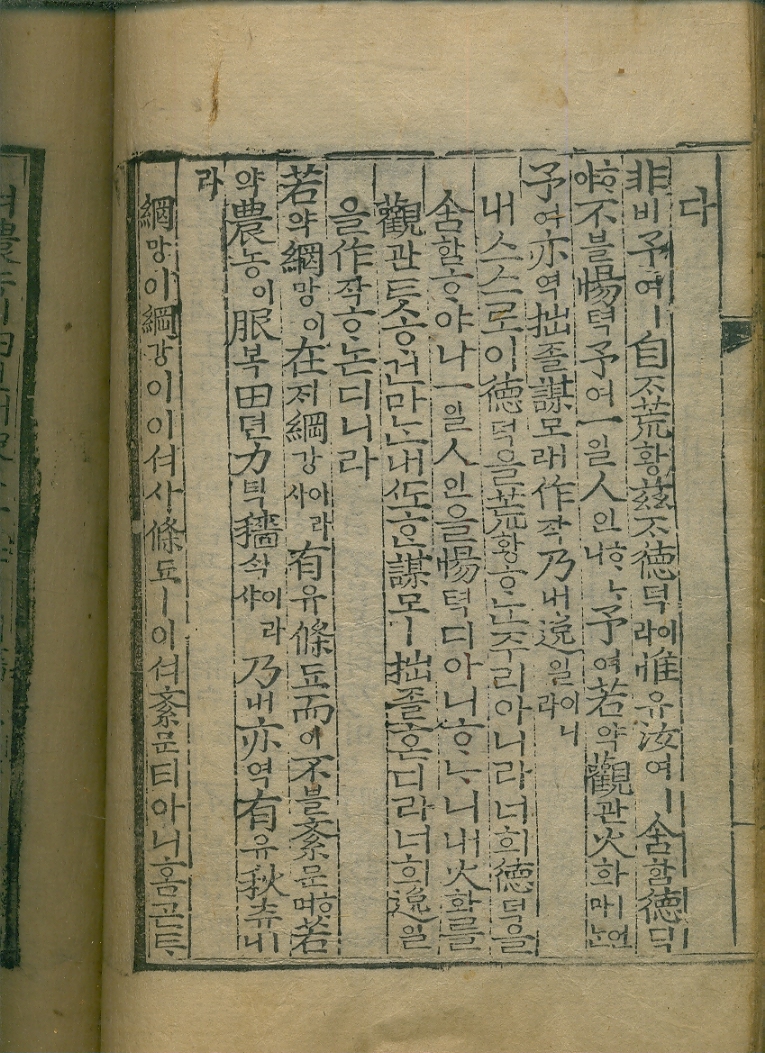 다
非비予여ㅣ自ᄌᆞ荒황茲ᄌᆞ德덕이라惟유汝여ㅣ含함德덕
ᄒᆞ야不블惕텩予여一일人인ᄒᆞᄂᆞ니予여若약觀관火화ㅣ언마ᄂᆞᆫ
予여亦역拙졸謀모ㅣ라作작乃내逸일이니라
내스스로이德덕을荒황ᄒᆞᄂᆞᆫ주리아니라너희德덕을
含함ᄒᆞ야나一일人인을惕텩디아니ᄒᆞᄂᆞ니내火화를
觀관ᄐᆞᆺᄒᆞ건마ᄂᆞᆫ내ᄯᅩᄒᆞᆫ謀모ㅣ拙졸ᄒᆞᆫ디라너희逸일
을作작ᄒᆞ논디니라
若약網망이在ᄌᆡ綱강이라사有유條됴而이不블紊문ᄒᆞ며若
약農농이服복田뎐力력穡ᄉᆡᆨ이라샤乃내亦역有유秋츄ㅣ니
라
網망이綱강이이셔사條됴ㅣ이셔紊문티아니홈ᄀᆞᆮᄐᆞ